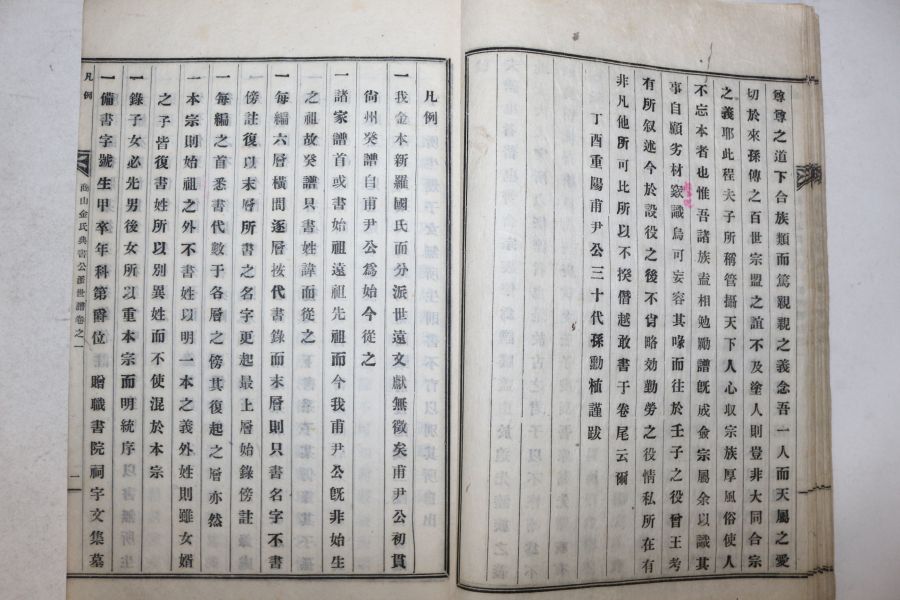 尊尊之道下合族類而篤親親之義念吾一人而天屬之愛
切於來孫傳之百世宗盟之誼不及塗人則豈非大同合宗
之義耶此程夫子所稱管攝天下人心収宗族厚風俗使人
不忘本者也惟吾諸族盍相勉勵譜旣成僉宗屬余以識其
事自顧劣材窾識烏可妄容其喙而往於壬子之役曾王考
有所叙述今於設役之後不肯略効勤勞之役情私所在有
非凡他所可比所以不揆僭越敢書于卷尾云爾
丁酉重陽甫尹公三十代孫勳植謹跋
凡例
一我金本新羅國氏而分派世遠文獻無徵矣甫尹公初貫
尙州癸譜自甫尹公爲始今從之
一諸家譜首或書始祖遠祖先祖而今我甫尹公旣非始生
之祖故癸譜只書姓諱而從之
一每編六層橫間逐層按代書錄而末層則只書名字不書
傍註復以末層所書之名字更起最上層始錄傍註
一每編之首悉書代數于各層之傍其復起之層亦然
一本宗則始祖之外不書姓以明一本之義外姓則雖女婿
之子皆復書姓所以別異姓而不使混於本宗
一錄子女必先男後女所以重本宗而明統序
一備書字號生甲卒年科第爵位贈職書院祠宇文集墓
凡例
商山金氏典書公派世譜卷之一
一